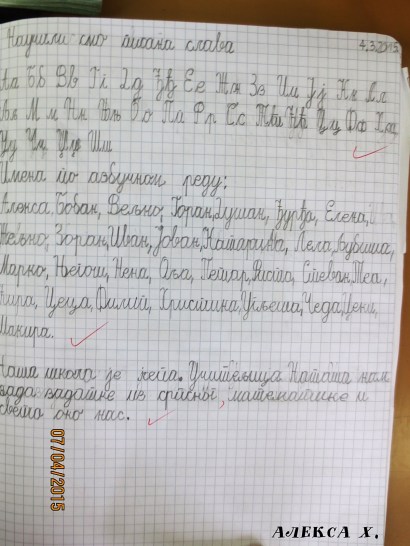 Научили смо писана слова 4.3.2015
Аа Бб Вв Гг Дд Ђђ Ее Жж Зз Ии Јј Кк Лл
Љљ Мм Нн Њњ Оо Па Рр Сс Тт Ћћ Цц Фф Хх
Уу Чч Џџ Шш
Имена по азбучном реду:
Алекса, Бобан, Вељко, Горан, Душан, Ђурђа, Елена,
Жељко, Зоран, Иван, Јован, Катарина, Лела, Љубиша,
Марко, Његош, Нена, Оља, Петар, Ристо, Стеван, Теа,
Ћира, Цеца, Филип, Христина, Уљеша, Чеда, Џени,
Шакира.
Наша школа је лепа. Учитељица Наташа нам
зада задатке из српског, математике и
света око нас.
07/04/2015
АЛЕКСА Х.